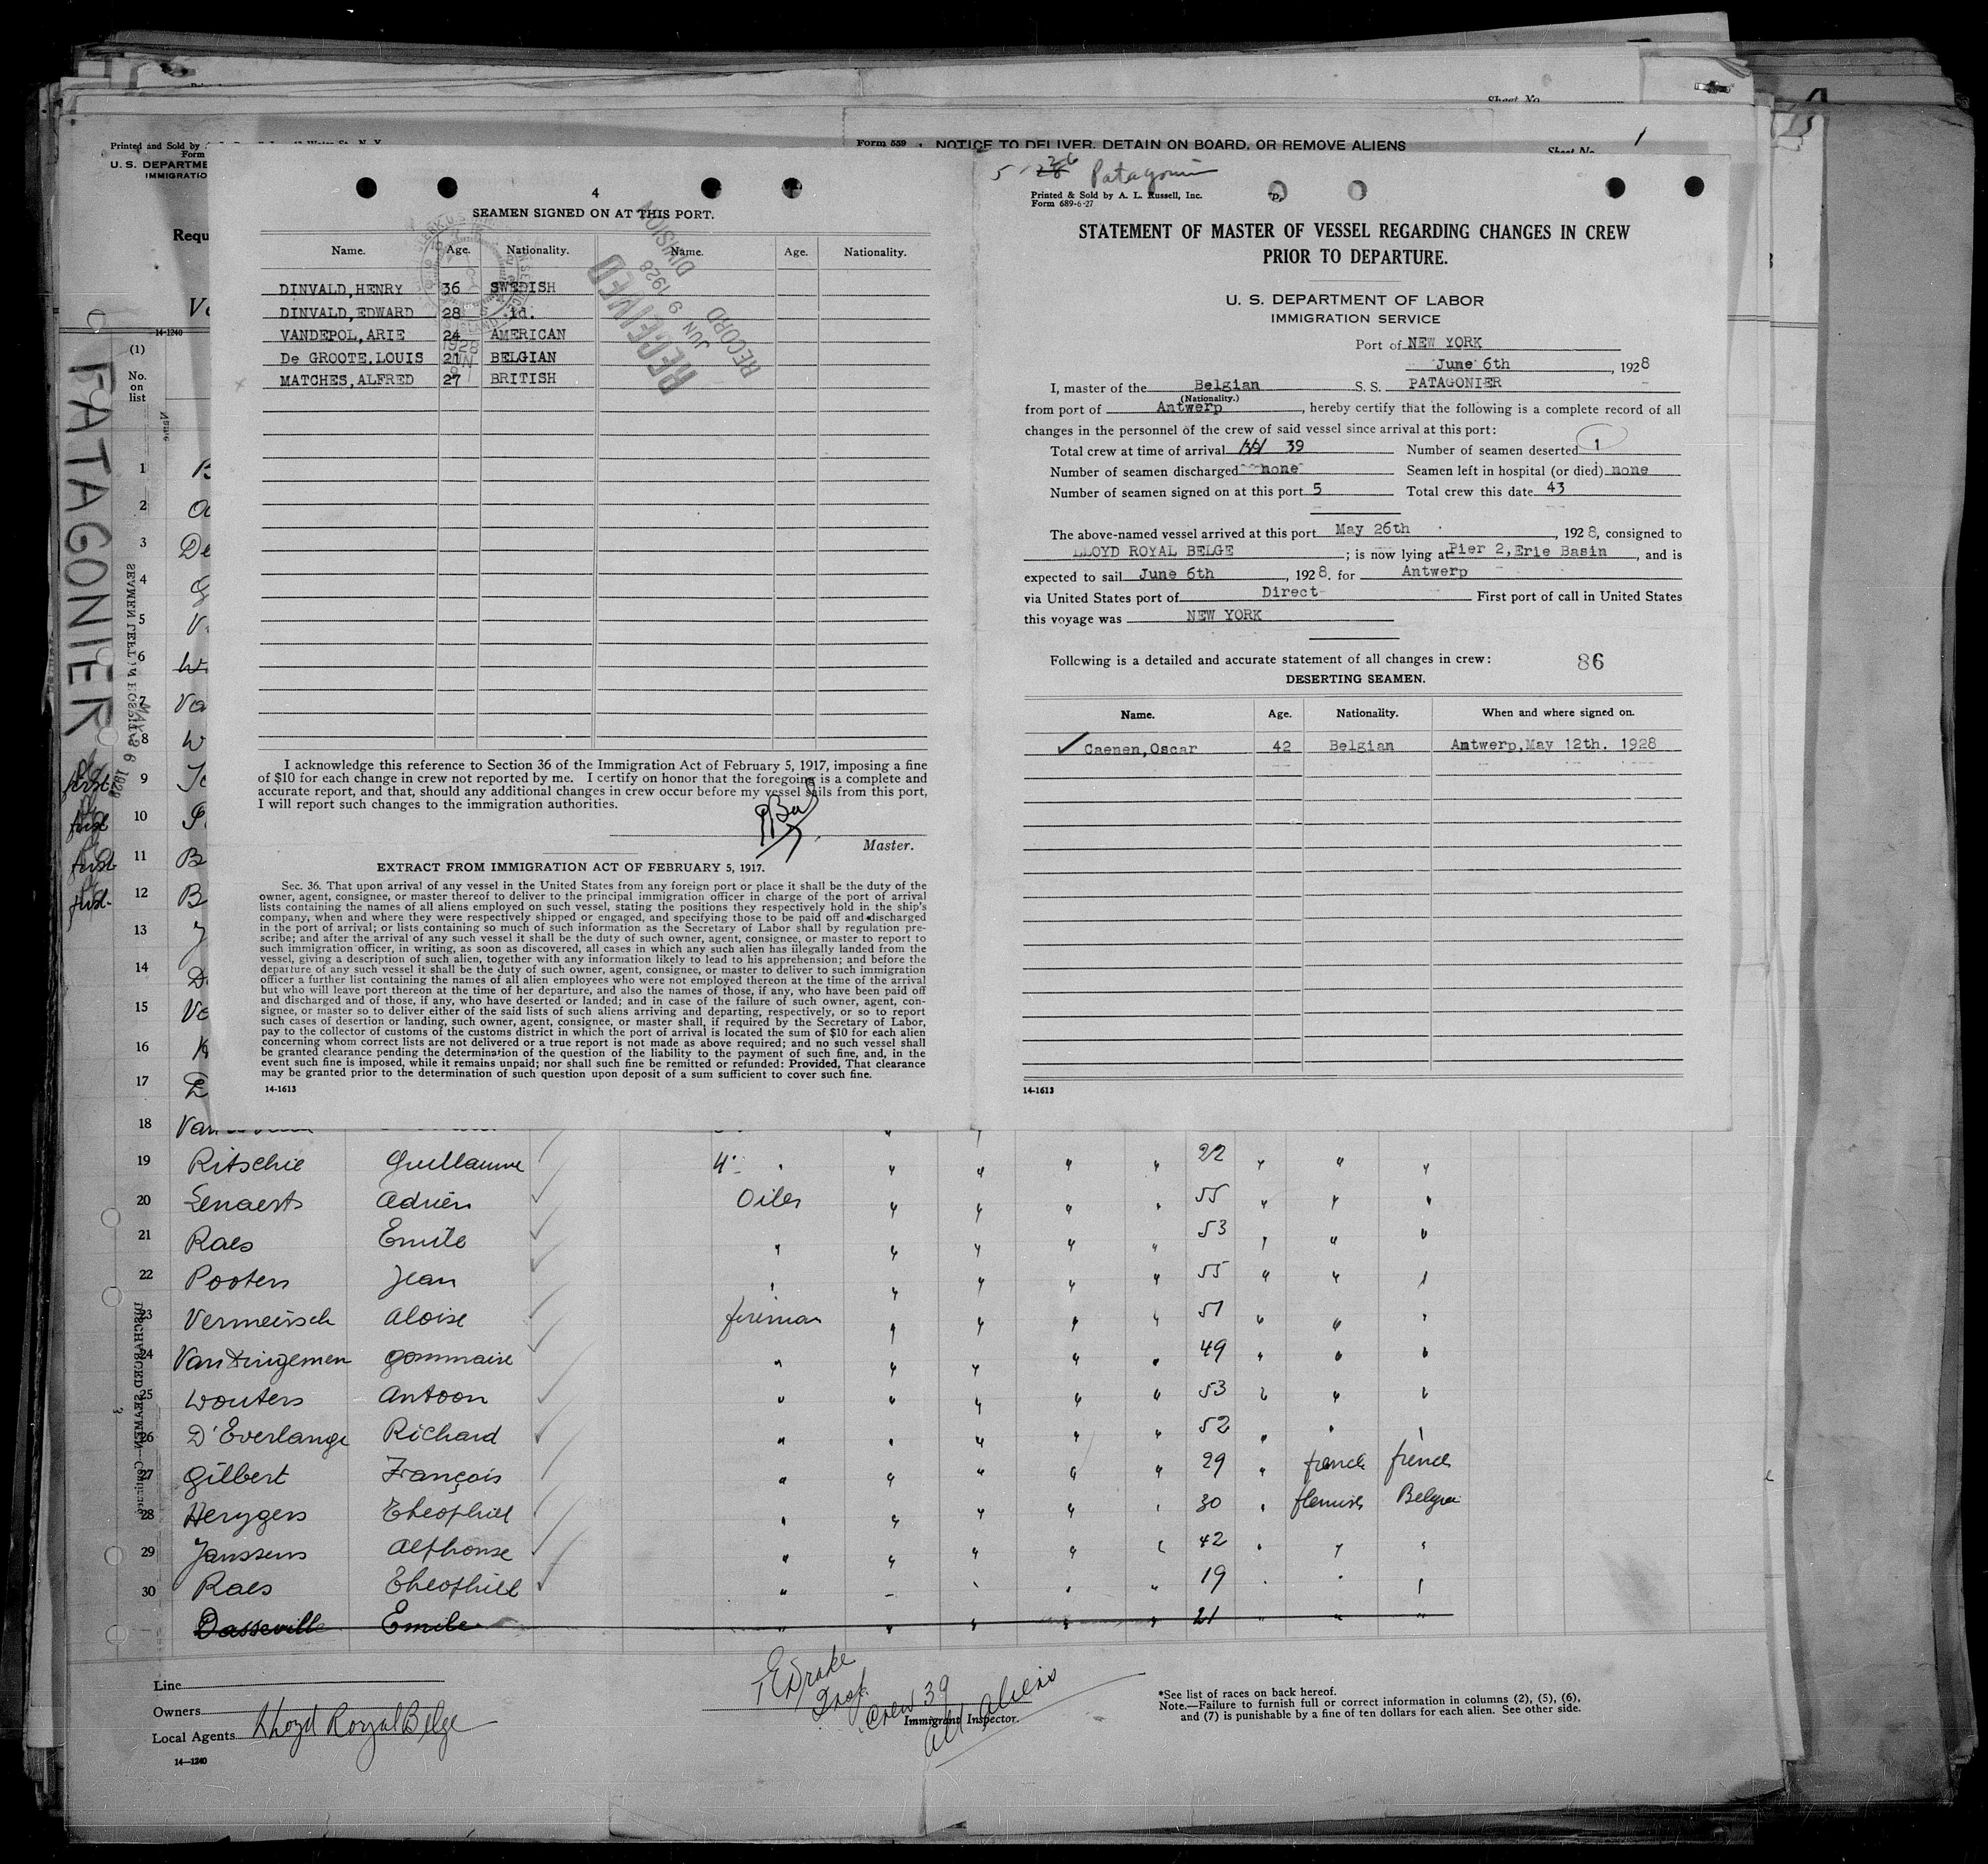 Sheet No.
Printed and Sold by
Form
U. S. DEPARTME
IMMIGRATIO
Form 559
NOTICE TO DELIVER, DETAIN ON BOARD, OR REMOVE ALIENS
Sheet No.
1
Requ
14-1240
(1)
No.
on
list
PATAGONIER
4
SEAMEN SIGNED ON AT THIS PORT.
Name. Age. Nationality. Name. Age. Nationality.
DINVALD,HENRY 36 SWEDISH
DINVALD,EDWARD 28 id.
VANDEPOL,ARIE 24 AMERICAN
De GROOTE.LOUIS 21 BELGIAN
MATCHES,ALFRED 27 BRITISH
RECEIVED
JUN 9 1928
RECORD
DIVISION
I acknowledge this reference to Section 36 of the Immigration Act of February 5, 1917, imposing a fine
of $10 for each change in crew not reported by me. I certify on honor that the foregoing is a complete and
accurate report, and that, should any additional changes in crew occur before my vessel sails from this port,
I will report such changes to the immigration authorities.
Master.
EXTRACT FROM IMMIGRATION ACT OF FEBRUARY 5, 1917.
Sec. 36. That upon arrival of any vessel in the United States from any foreign port or place it shall be the duty of the
owner, agent, consignee, or master thereof to deliver to the principal immigration officer in charge of the port of arrival
lists containing the names of all aliens employed on such vessel, stating the positions they respectively hold in the ship's
company, when and where they were respectively shipped or engaged, and specifying those to be paid off and discharged
in the port of arrival; or lists containing so much of such information as the Secretary of Labor shall by regulation pre-
scribe; and after the arrival of any such vessel it shall be the duty of such owner, agent, consignee, or master to report to
such immigration officer, in writing, as soon as discovered, all cases in which any such alien has illegally landed from the
vessel, giving a description of such alien, together with any information likely to lead to his apprehension; and before the
departure of any such vessel it shall be the duty of such owner, agent, consignee, or master to deliver to such immigration
officer a further list containing the names of all alien employees who were not employed thereon at the time of the arrival
but who will leave port thereon at the time of her departure, and also the names of those, if any, who have been paid off
and discharged and of those, if any, who have deserted or landed; and in case of the failure of such owner, agent, con-
signee, or master so to deliver either of the said lists of such aliens arriving and departing, respectively, or so to report
such cases of desertion or landing, such owner, agent, consignee, or master shall, if required by the Secretary of Labor,
pay to the collector of customs of the customs district in which the port of arrival is located the sum of $10 for each alien
concerning whom correct lists are not delivered or a true report is not made as above required; and no such vessel shall
be granted clearance pending the determination of the question of the liability to the payment of such fine, and, in the
event such fine is imposed, while it remains unpaid; nor shall such fine be remitted or refunded: Provided, That clearance
may be granted prior to the determination of such question upon deposit of a sum sufficient to cover such fine.
14-1613
Printed & Sold by A. L. Russell, Inc.
Form 689-6-27
STATEMENT OF MASTER OF VESSEL REGARDING CHANGES IN CREW
PRIOR TO DEPARTURE.
U. S. DEPARTMENT OF LABOR
IMMIGRATION SERVICE
Port of NEW YORK
June 6th, 1928
I, master of the Belgian S. S. PATAGONIER
(Nationality.)
from port of Antwerp, hereby certify that the following is a complete record of all
changes in the personnel of the crew of said vessel since arrival at this port:
Total crew at time of arrival 39 Number of seamen deserted 1
Number of seamen discharged none Seamen left in hospital (or died) none
Number of seamen signed on at this port 5 Total crew this date 43
The above-named vessel arrived at this port May 26th, 1928, consigned to
LLOYD ROYAL BELGE; is now lying at Pier 2,Erie Basin, and is
expected to sail June 6th, 1928. for Antwerp
via United States port of Direct First port of call in United States
this voyage was NEW YORK
Following is a detailed and accurate statement of all changes in crew: 86
DESERTING SEAMEN.
Name. Age. Nationality. When and where signed on.
Caenen,Oscar 42 Belgian Antwerp,May 12th. 1928
14-1613
1
2
3 De
4
5
6
7
8
9
10
11
12
13
14
15
16
17
18 Van
19 Ritschie Guillaume 4" " " " " " 22 " " "
20 Lenaerts Adrien Oiler " " " " 55 " " "
21 Raes Emile " " " " " 53 " " "
22 Pooters Jean " " " " " 55 " " "
23 Vermeirsch Aloise fireman " " " " 51 " " "
24 Van Dingemen Gommaire " " " " " 49 " " "
25 Wouters Antoon " " " " " 53 " " "
26 D'Everlange Richard " " " " " 52 " " "
27 Gilbert François " " " " " 29 " french french
28 Herygers Theophiel " " " " " 30 " flemish Belgian
29 Janssens Alfhonse " " " " " 42 " " "
30 Raes Theophiel " " " " " 19 " " "
Dasseville Emile " " " " " 21 " " "
Line
Owners
Local Agents Lloyd Royal Belge
14-1240
T E Drake
Insp.
Crew 39
all Aliens
Immigrant Inspector.
*See list of races on back hereof.
Note.—Failure to furnish full or correct information in columns (2), (5), (6),
and (7) is punishable by a fine of ten dollars for each alien. See other side.